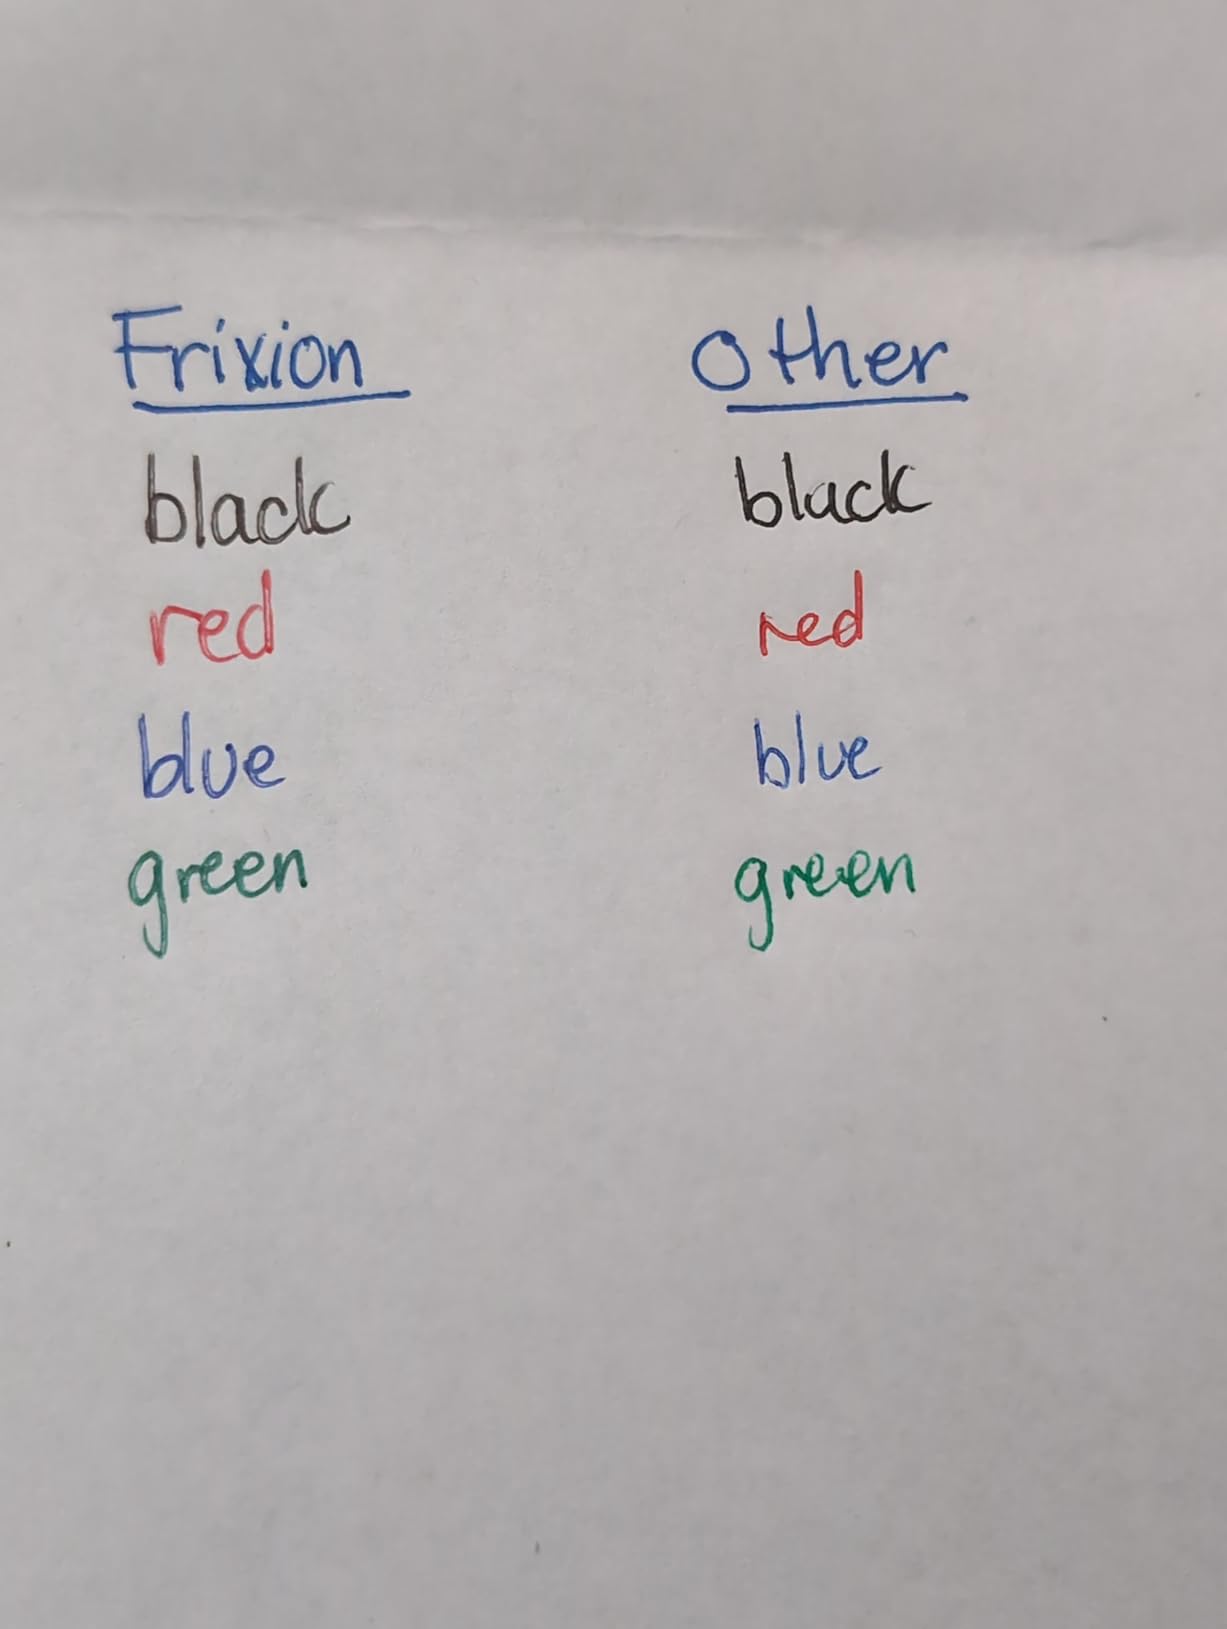 Frixion Other
black black
red red
blue blue
green green